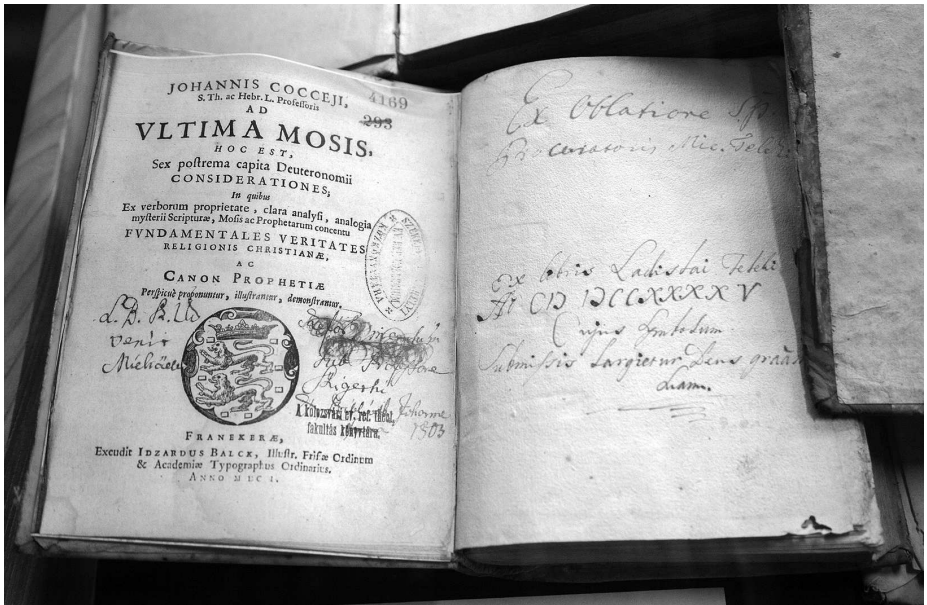 JOHANNIS COCCEJI,
S. Th. ac Hebr. L. Professoris
4169
293
AD
VLTIMA MOSIS,
HOC EST,
Sex postrema capita Deuteronomii
CONSIDERATIONES,
In quibus
Ex verborum proprietate, clara analysi, analogia
mysterii Scripturæ, Mosis ac Prophetarum concentu
FVNDAMENTALES VERITATES
RELIGIONIS CHRISTIANÆ,
AC
CANON PROPHETIÆ
Perspicuè proponuntur, illustrantur, demonstrantur.
venit
A kolozsvári ev. ref. theol.
fakultás könyvtára.
1803
FRANEKERÆ,
Excudit IDZARDUS BALCK, Illustr. Frisiæ Ordinum
& Academiæ Typographus Ordinarius.
ANNO
Ex Oblatione
Procuratoris Mic. Teleki
Ex libris Ladislai Teleki
Ao CIↃ IↃCCXXXXV
Cujus Symbolum
Submissis Largietur Deus gratiam